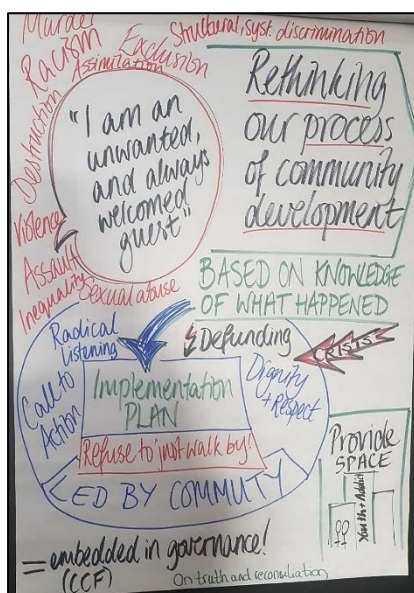 Murder
Racism
Assimilation
Exclusion
Structural, syst. discrimination
Destruction
Violence
Assault
Inequality
Sexual abuse
"I am an
unwanted,
and always
welcomed
guest"
Rethinking
our process
of community
development
BASED ON KNOWLEDGE
OF WHAT HAPPENED
Radical
Listening
Call to
Action
Defunding
CRISIS
Dignity
+ Respect
Implementation
PLAN
Refuse to 'just walk by!'
LED BY COMMUTY
Provide
SPACE
Youth + Addict
= embedded in governance!
(CCF)
On truth and reconciliation